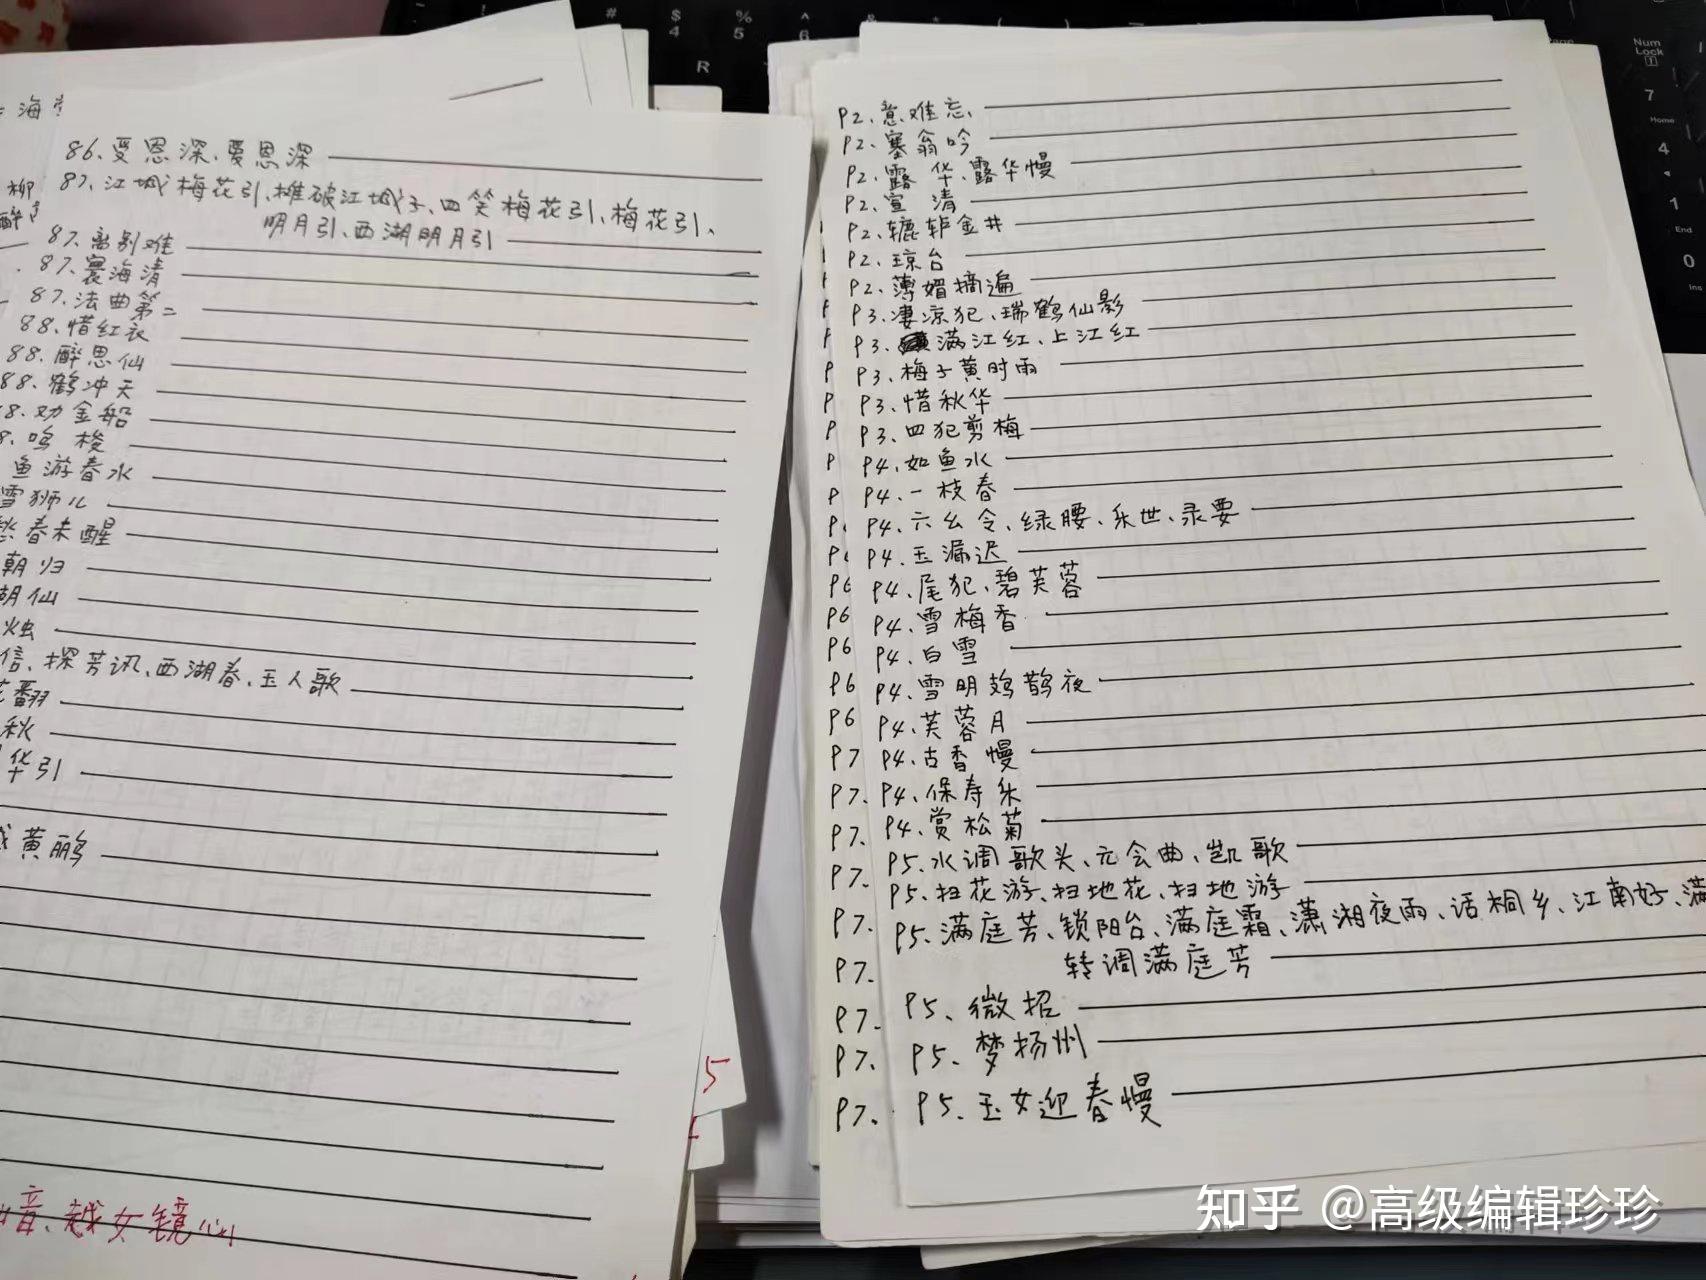 海
柳
醉
86.受恩深、爱恩深
87.江城梅花引、摊破江城子、四笑梅花引、梅花引、
明月引、西湖明月引
87.离别难
87.寰海清
87.法曲第二
88.惜红衣
88.醉思仙
88.鹤冲天
8.劝金船
8.鸣梭
鱼游春水
雪狮儿
春未醒
朝归
湖仙
烛
信、探芳讯、西湖春、玉人歌
花翻
秋
华引
黄鹂
音、越女镜心
5
P2.意难忘、
P2.塞翁吟
P2.露华、露华慢
P2.宣清
P2.辘轳金井
P2.琼台
P2.薄媚摘遍
P3.凄凉犯、瑞鹤仙影
P3.满江红、上江红
P3.梅子黄时雨
P3.惜秋华
P3.四犯剪梅
P4.如鱼水
P4.一枝春
P4.六幺令、绿腰、乐世、录要
P4.玉漏迟
P4.尾犯、碧芙蓉
P4.雪梅香
P4.白雪
P4.雪明鳷鹊夜
P4.芙蓉月
P4.古香慢
P4.保寿乐
P4.赏松菊
P5.水调歌头、元会曲、凯歌
P5.扫花游、扫地花、扫地游
P5.满庭芳、锁阳台、满庭霜、潇湘夜雨、话桐乡、江南好、满
转调满庭芳
P5、徵招
P5.梦扬州
P5、玉女迎春慢
P6
P6
P6
P6
P6
P7
P7.
P7.
P7.
P7.
P7.
P7.
P7.
P7.
知乎 @高级编辑珍珍